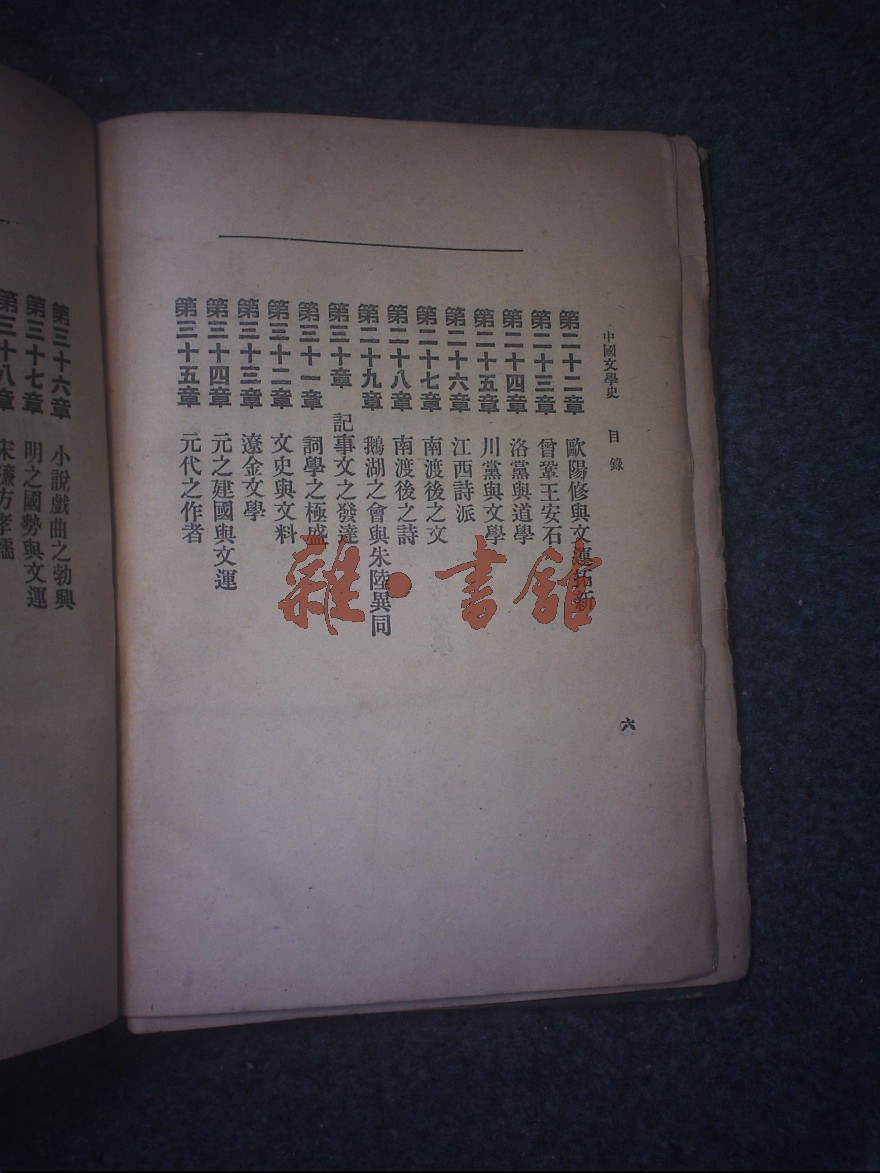 中國文學史 目錄 六
第二十二章 歐陽修與文運拓新
第二十三章 曾鞏王安石
第二十四章 洛黨與道學
第二十五章 川黨與文學
第二十六章 江西詩派
第二十七章 南渡後之文
第二十八章 南渡後之詩
第二十九章 鵝湖之會與朱陸異同
第三十章 記事文之發達
第三十一章 詞學之極盛
第三十二章 文史與文料
第三十三章 遼金文學
第三十四章 元之建國與文運
第三十五章 元代之作者
第三十六章 小說戲曲之勃興
第三十七章 明之國勢與文運
第三十八章 宋濂方孝孺
雜·書館